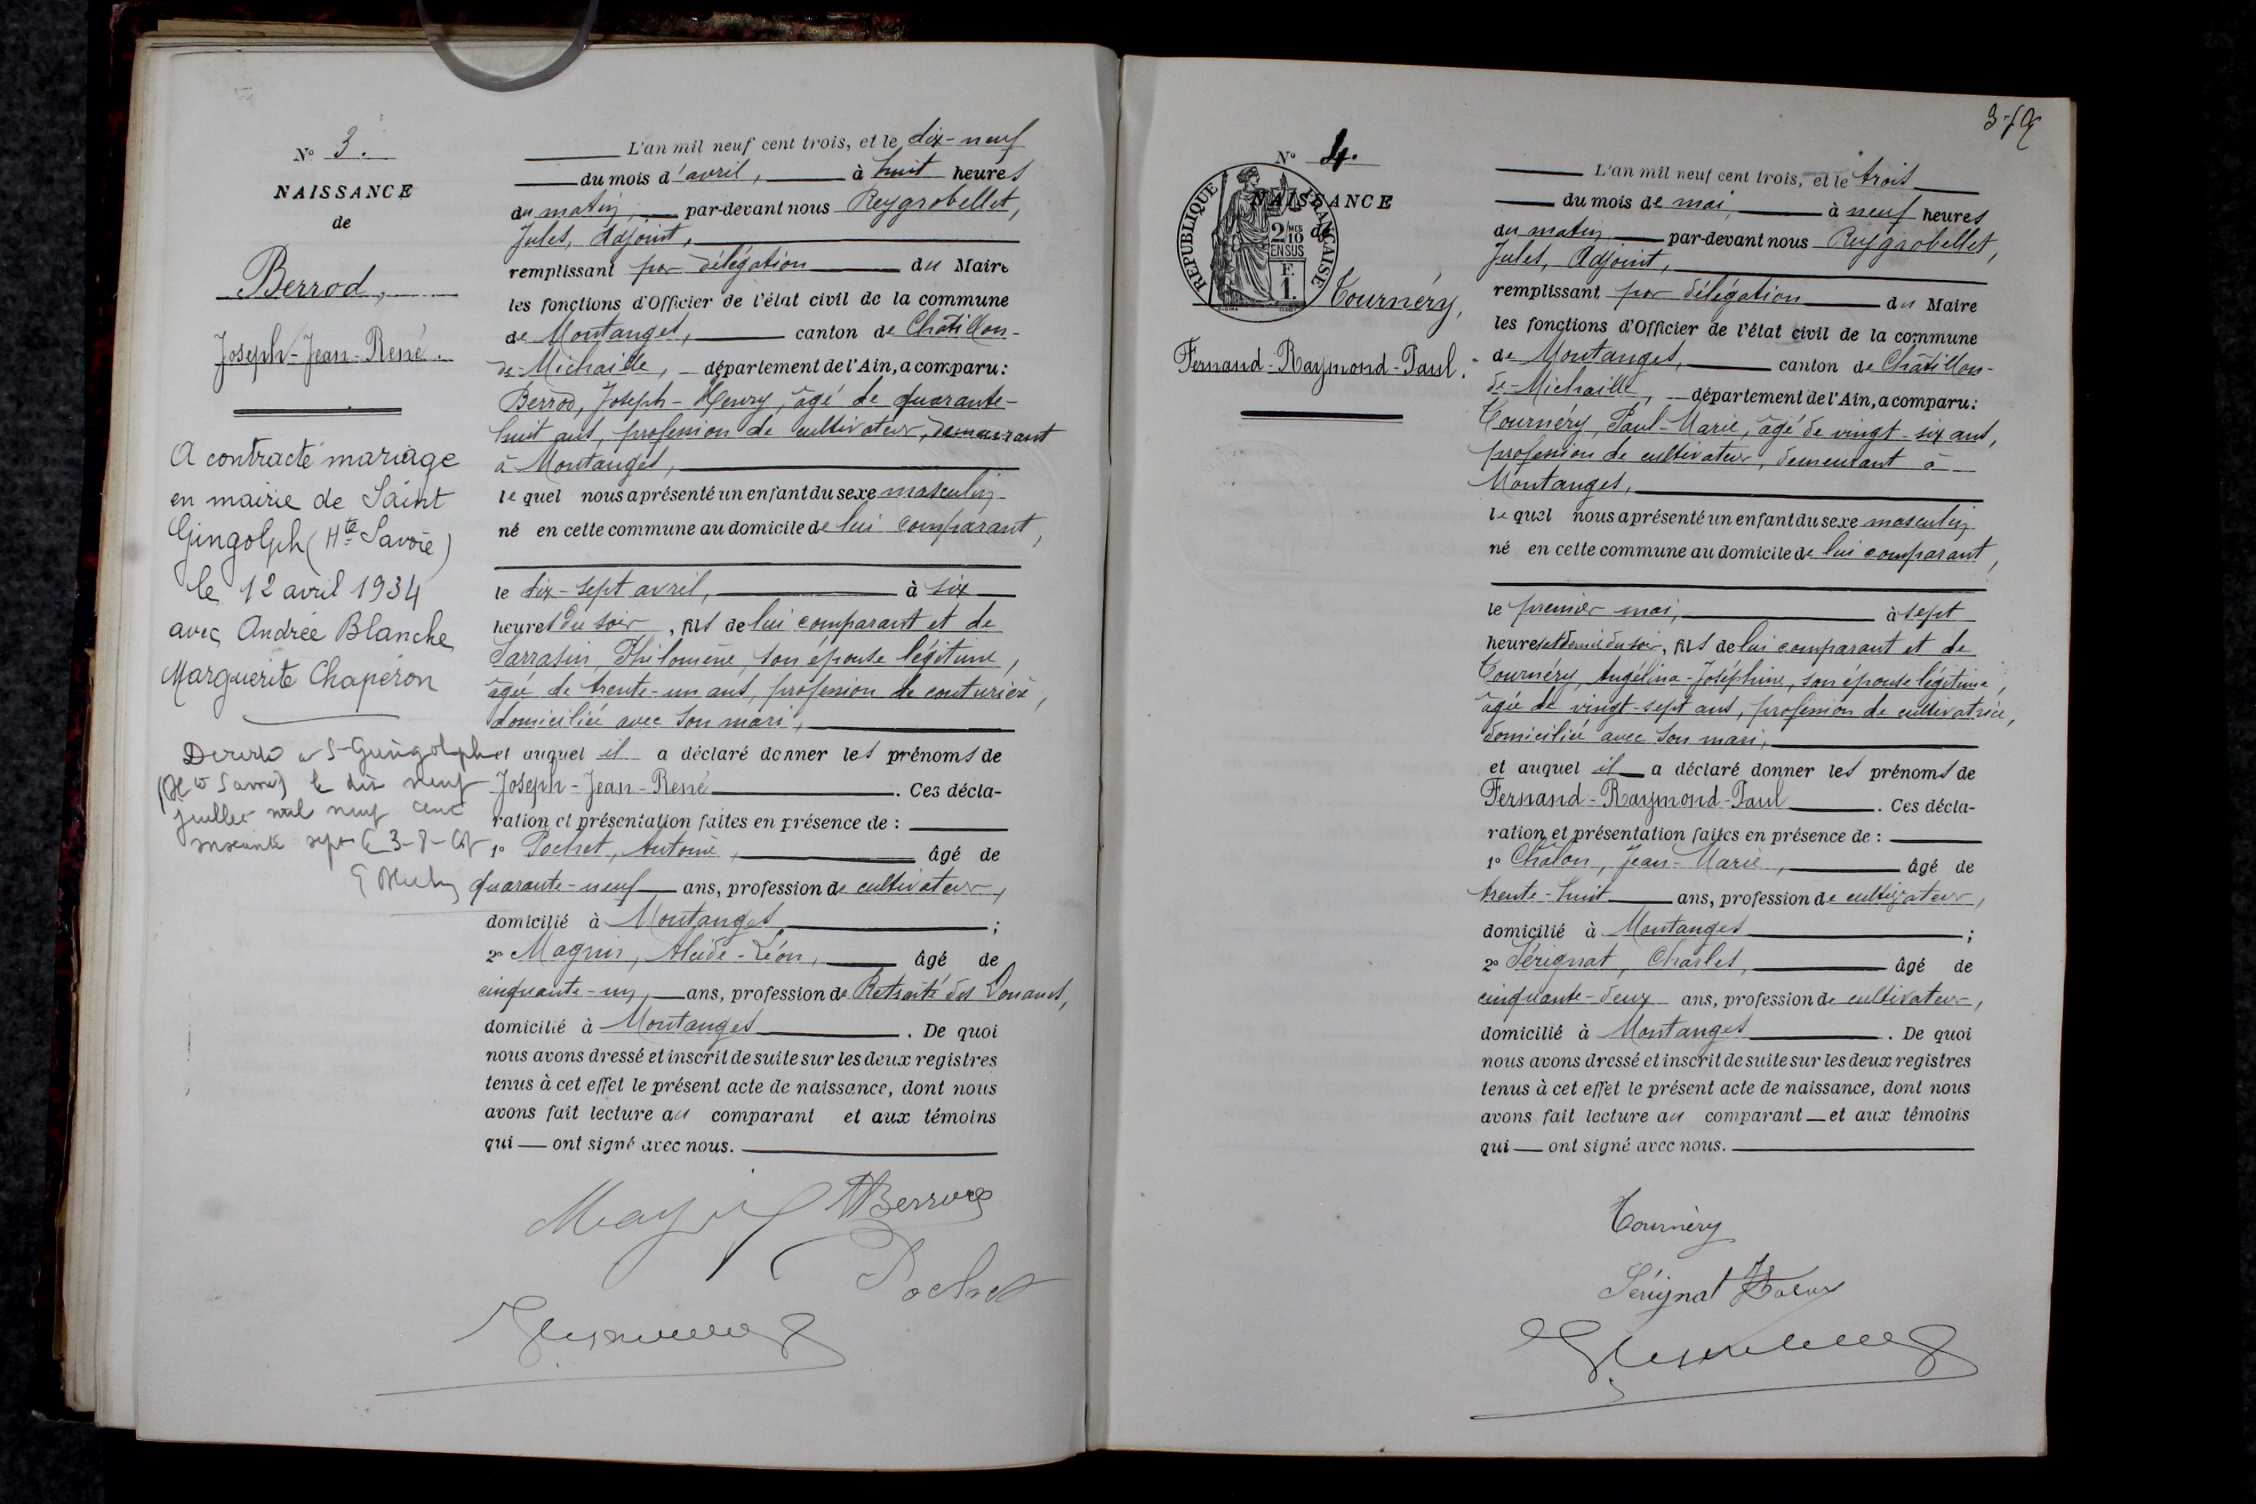 N° 3.
NAISSANCE
de
Berrod,
Joseph-Jean-René.
A contracté mariage
en mairie de Saint
Gingolph (Hte Savoie)
le 12 avril 1934
avec Andrée Blanche
Marguerite Chaperon
Décédé à St-Gingolph
(Hte Savoie) le dix neuf
juillet mil neuf cent
soixante sept le 3-8-67
L'an mil neuf cent trois, et le dix-neuf
du mois d'avril, à huit heures
du matin, par-devant nous Reygrobellet,
Jules, Adjoint,
remplissant par délégation du Maire
les fonctions d'Officier de l'état civil de la commune
de Montanges, canton de Châtillon-
de-Michaille, département de l'Ain, a comparu:
Berrod, Joseph-Henry, âgé de quarante-
huit ans, profession de cultivateur, demeurant
à Montanges,
lequel nous a présenté un enfant du sexe masculin
né en cette commune au domicile de lui comparant,
le dix-sept avril, à six
heures du soir, fils de lui comparant et de
Sarrasin, Philomène, son épouse légitime,
âgée de trente-un ans, profession de couturière,
domiciliée avec son mari,
et auquel il a déclaré donner les prénoms de
Joseph-Jean-René. Ces décla-
ration et présentation faites en présence de :
1° Pochet, Antoine, âgé de
quarante-neuf ans, profession de cultivateur,
domicilié à Montanges ;
2° Magnin, Alcide-Léon, âgé de
cinquante-un ans, profession de Retraité des Douanes,
domicilié à Montanges. De quoi
nous avons dressé et inscrit de suite sur les deux registres
tenus à cet effet le présent acte de naissance, dont nous
avons fait lecture au comparant et aux témoins
qui ont signé avec nous.
Magnin Berrod
Pochet
379
N° 4.
NAISSANCE
de
RÉPUBLIQUE FRANÇAISE
2/10 MES
EN SUS
F.
1.
Tournéry,
Fernand-Raymond-Paul.
L'an mil neuf cent trois, et le trois
du mois de mai, à neuf heures
du matin par-devant nous Reygrobellet,
Jules, Adjoint,
remplissant par délégation du Maire
les fonctions d'Officier de l'état civil de la commune
de Montanges, canton de Châtillon-
de-Michaille, département de l'Ain, a comparu:
Tournéry, Paul-Marie, âgé de vingt-six ans,
profession de cultivateur, demeurant à
Montanges,
lequel nous a présenté un enfant du sexe masculin
né en cette commune au domicile de lui comparant,
le premier mai, à sept
heures et demie du soir, fils de lui comparant et de
Tournéry, Angélina-Joséphine, son épouse légitime,
âgée de vingt-sept ans, profession de cultivatrice,
domiciliée avec son mari,
et auquel il a déclaré donner les prénoms de
Fernand-Raymond-Paul. Ces décla-
ration et présentation faites en présence de :
1° Châlon, Jean-Marie, âgé de
trente-huit ans, profession de cultivateur,
domicilié à Montanges ;
2° Sérignat, Charles, âgé de
cinquante-deux ans, profession de cultivateur,
domicilié à Montanges. De quoi
nous avons dressé et inscrit de suite sur les deux registres
tenus à cet effet le présent acte de naissance, dont nous
avons fait lecture au comparant et aux témoins
qui ont signé avec nous.
Tournéry
Sérignat